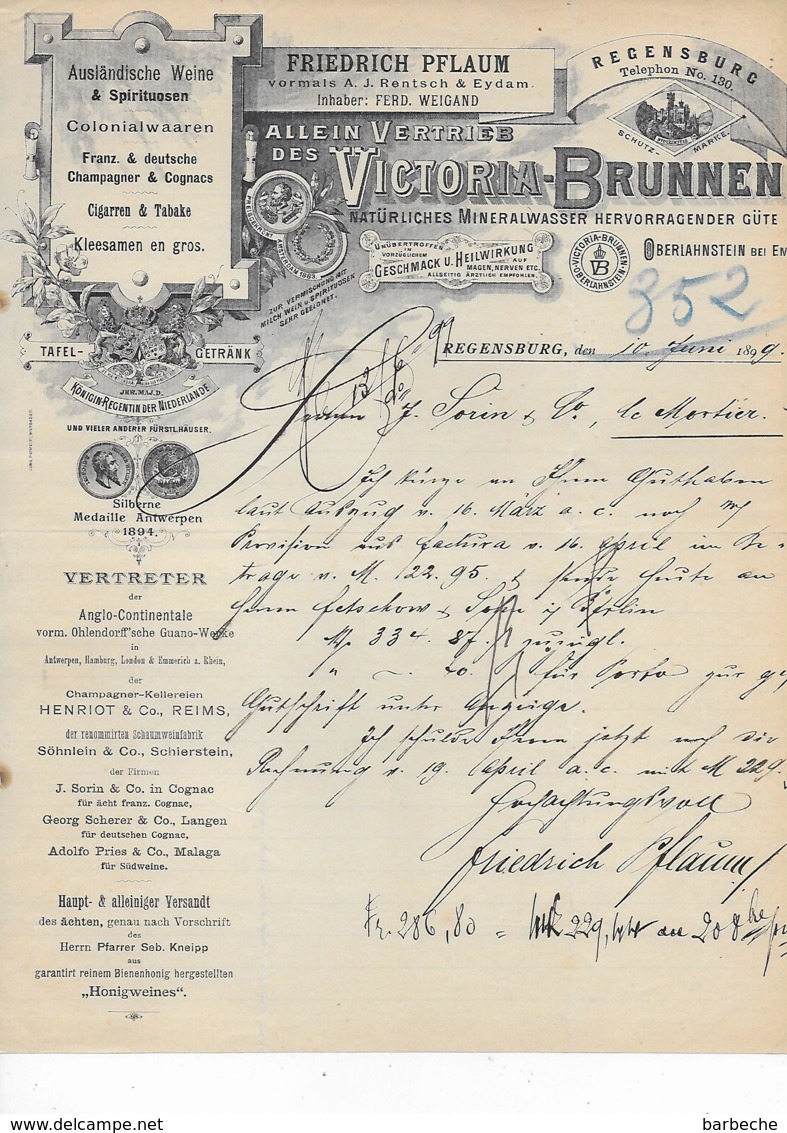 Ausländische Weine
& Spirituosen
Colonialwaaren
Franz. & deutsche
Champagner & Cognacs
Cigarren & Tabake
Kleesamen en gros.
FRIEDRICH PFLAUM
vormals A. J. Rentsch & Eydam.
Inhaber: FERD. WEIGAND
REGENSBURG
Telephon No. 130.
SCHUTZ-MARKE.
ALLEIN VERTRIEB
DES VICTORIA-BRUNNEN
NATÜRLICHES MINERALWASSER HERVORRAGENDER GÜTE
UNÜBERTROFFEN
IN
VORZÜGLICHEM
GESCHMACK U. HEILWIRKUNG
AUF
MAGEN, NERVEN ETC.
ALLSEITIG ÄRZTLICH EMPFOHLEN.
VICTORIA-BRUNNEN
VB
OBERLAHNSTEIN
OBERLAHNSTEIN BEI EM
AMSTERDAM 1883.
ZUR VERMISCHUNG MIT
MILCH WEIN U SPIRITUOSEN
SEHR GEEIGNET.
352
TAFEL-GETRÄNK
IHR. MAJ. D.
KÖNIGIN-REGENTIN DER NIEDERLANDE
UND VIELER ANDERER FÜRSTL. HÄUSER.
Silberne
Medaille Antwerpen
1894.
VERTRETER
der
Anglo-Continentale
vorm. Ohlendorff'sche Guano-Werke
in
Antwerpen, Hamburg, London & Emmerich a. Rhein,
der
Champagner-Kellereien
HENRIOT & Co., REIMS,
der renommirten Schaumweinfabrik
Söhnlein & Co., Schierstein,
der Firmen
J. Sorin & Co. in Cognac
für ächt franz. Cognac,
Georg Scherer & Co., Langen
für deutschen Cognac,
Adolfo Pries & Co., Malaga
für Südweine.
Haupt- & alleiniger Versandt
des ächten, genau nach Vorschrift
des
Herrn Pfarrer Seb. Kneipp
aus
garantirt reinem Bienenhonig hergestellten
„Honigweines".
REGENSBURG, den 10. Juni 1899.
Herren J. Sorin & Co, le Mortier.
Ich kürze an Ihrem Guthaben
laut Auszug v. 16. März a. c. noch
Provision aus Factura v. 16 April im Be-
trage v. M. 122.95. & sende heute an
Herren Jetschow & Sohn Berlin
M. 334.87. zuzügl.
" -. 20. für Porto zur
Gutschrift unter Anzeige.
Ich schulde Ihnen jetzt noch die
Rechnung v. 19. April a. c. mit M 229.
Hochachtungsvoll
Friedrich Pflaum
Fr. 286,80 = 229,
barbeche